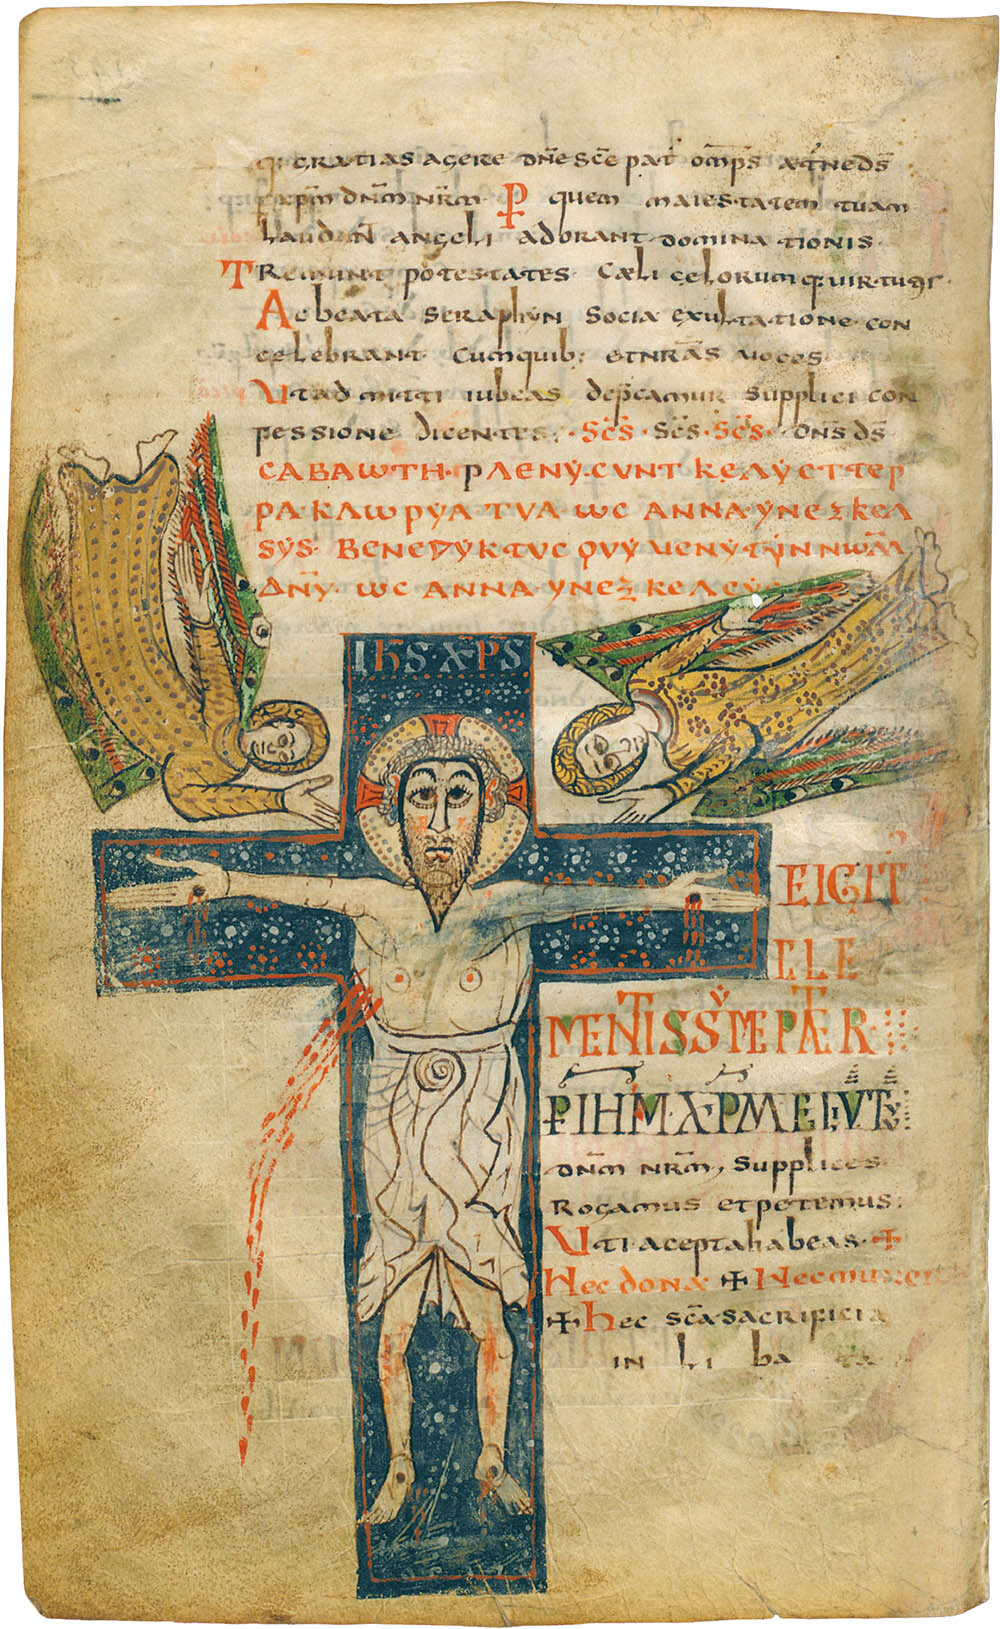 q: gratias agere dn̄e sc̄e pat omp̄s aet̄ne ds̄
p xp̄m dn̄m nr̄m · P quem maiestatem tuam
laudan̄ angeli adorant dominationis
Tremunt potestates caeli celorumq: uirtutes
Ac beata seraphyn socia exultatione con
celebrant cumquib: et nr̄as uoces
Ut admitti iubeas dep̄camur supplici con
fessione dicentes · Sc̄s · Sc̄s · Sc̄s · dn̄s ds̄
CABAWTH · PΛENY · CVNT KEΛY ET TEP
PA KΛWPYA TVA WC ANNA YNEΞKEΛ
SYS · BENEDYKTVC QVY VENYT YN NWM̄
DN̄Y · WC ANNA YNEΞKEΛ
IHS · XP̄S
EIGIT
CLE
MENTISSYME PATER
P IHM XPM
dn̄m nr̄m, supplices
Rogamus et petemus:
Uti acepta habeas · ✠
Hec dona ✠ Hec munera
✠ hec sc̄a sacrificia
in li ba ta